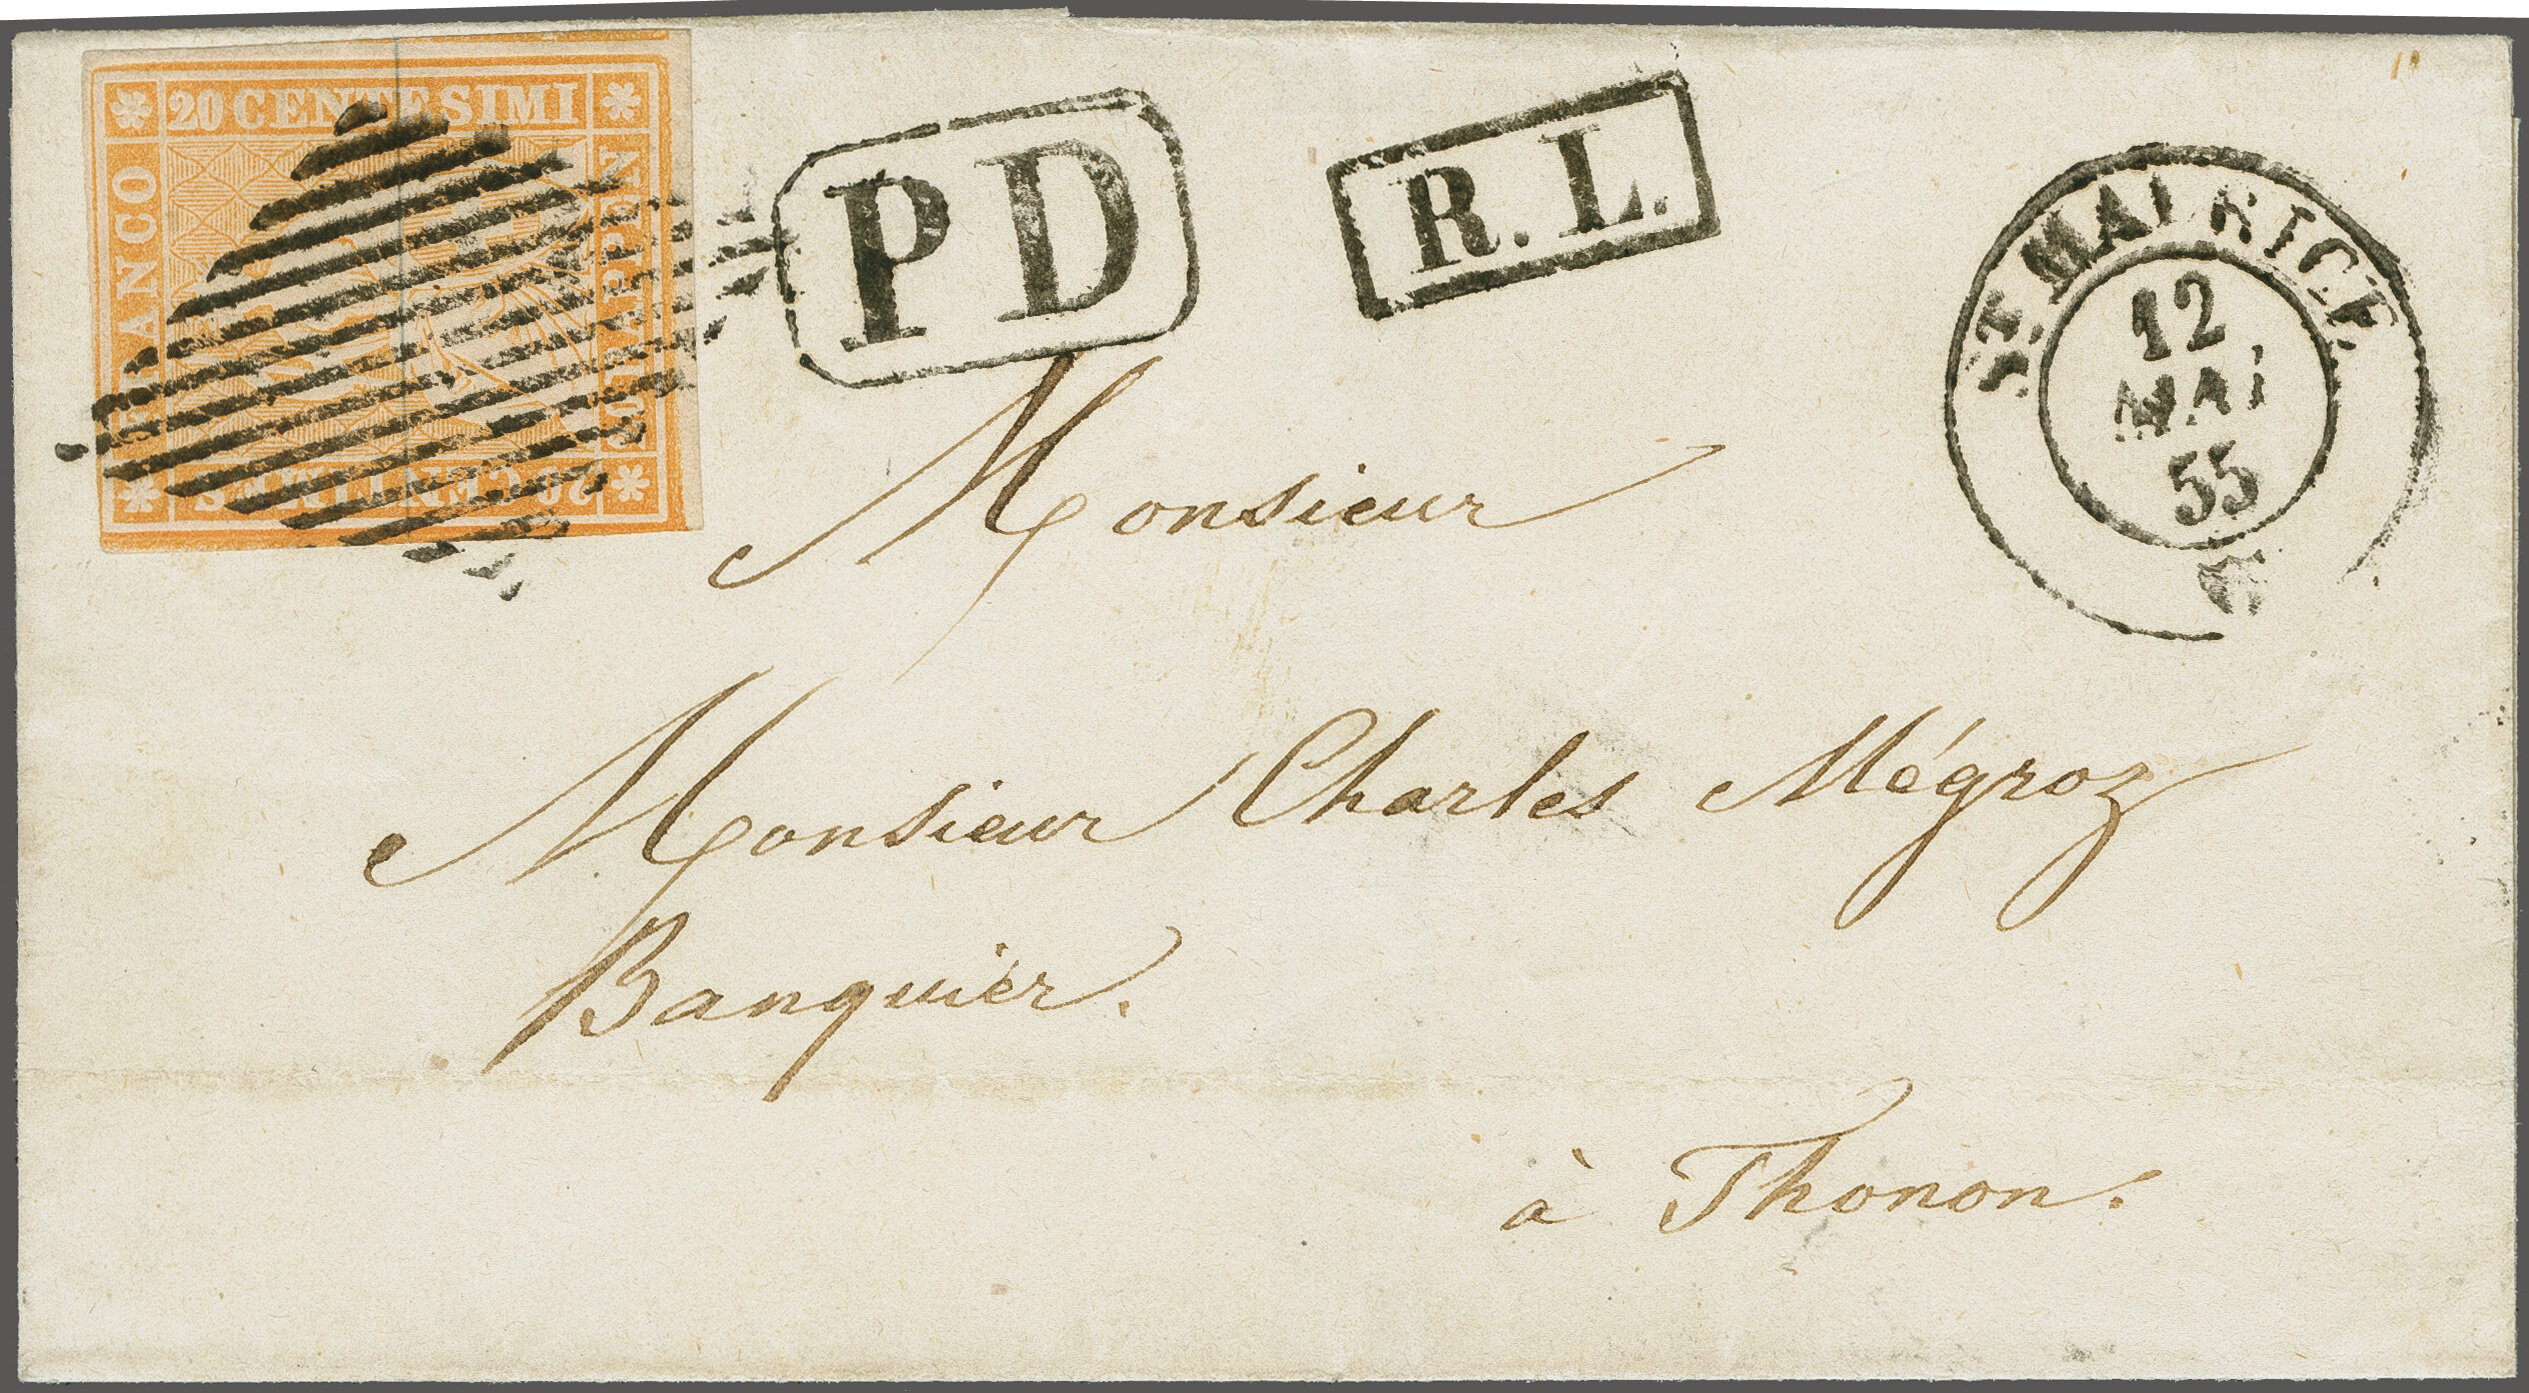 20 CENTESIMI
FRANCO
20 RAPPEN
20 CENTIMES
PD
R. L.
ST. MAURICE
12
MAI
55
Monsieur
Monsieur Charles Mégroz
Banquier.
à Thonon.